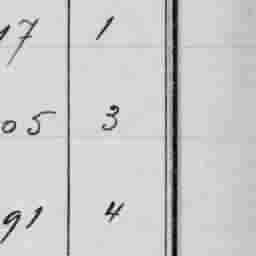 17 1
05 3
91 4